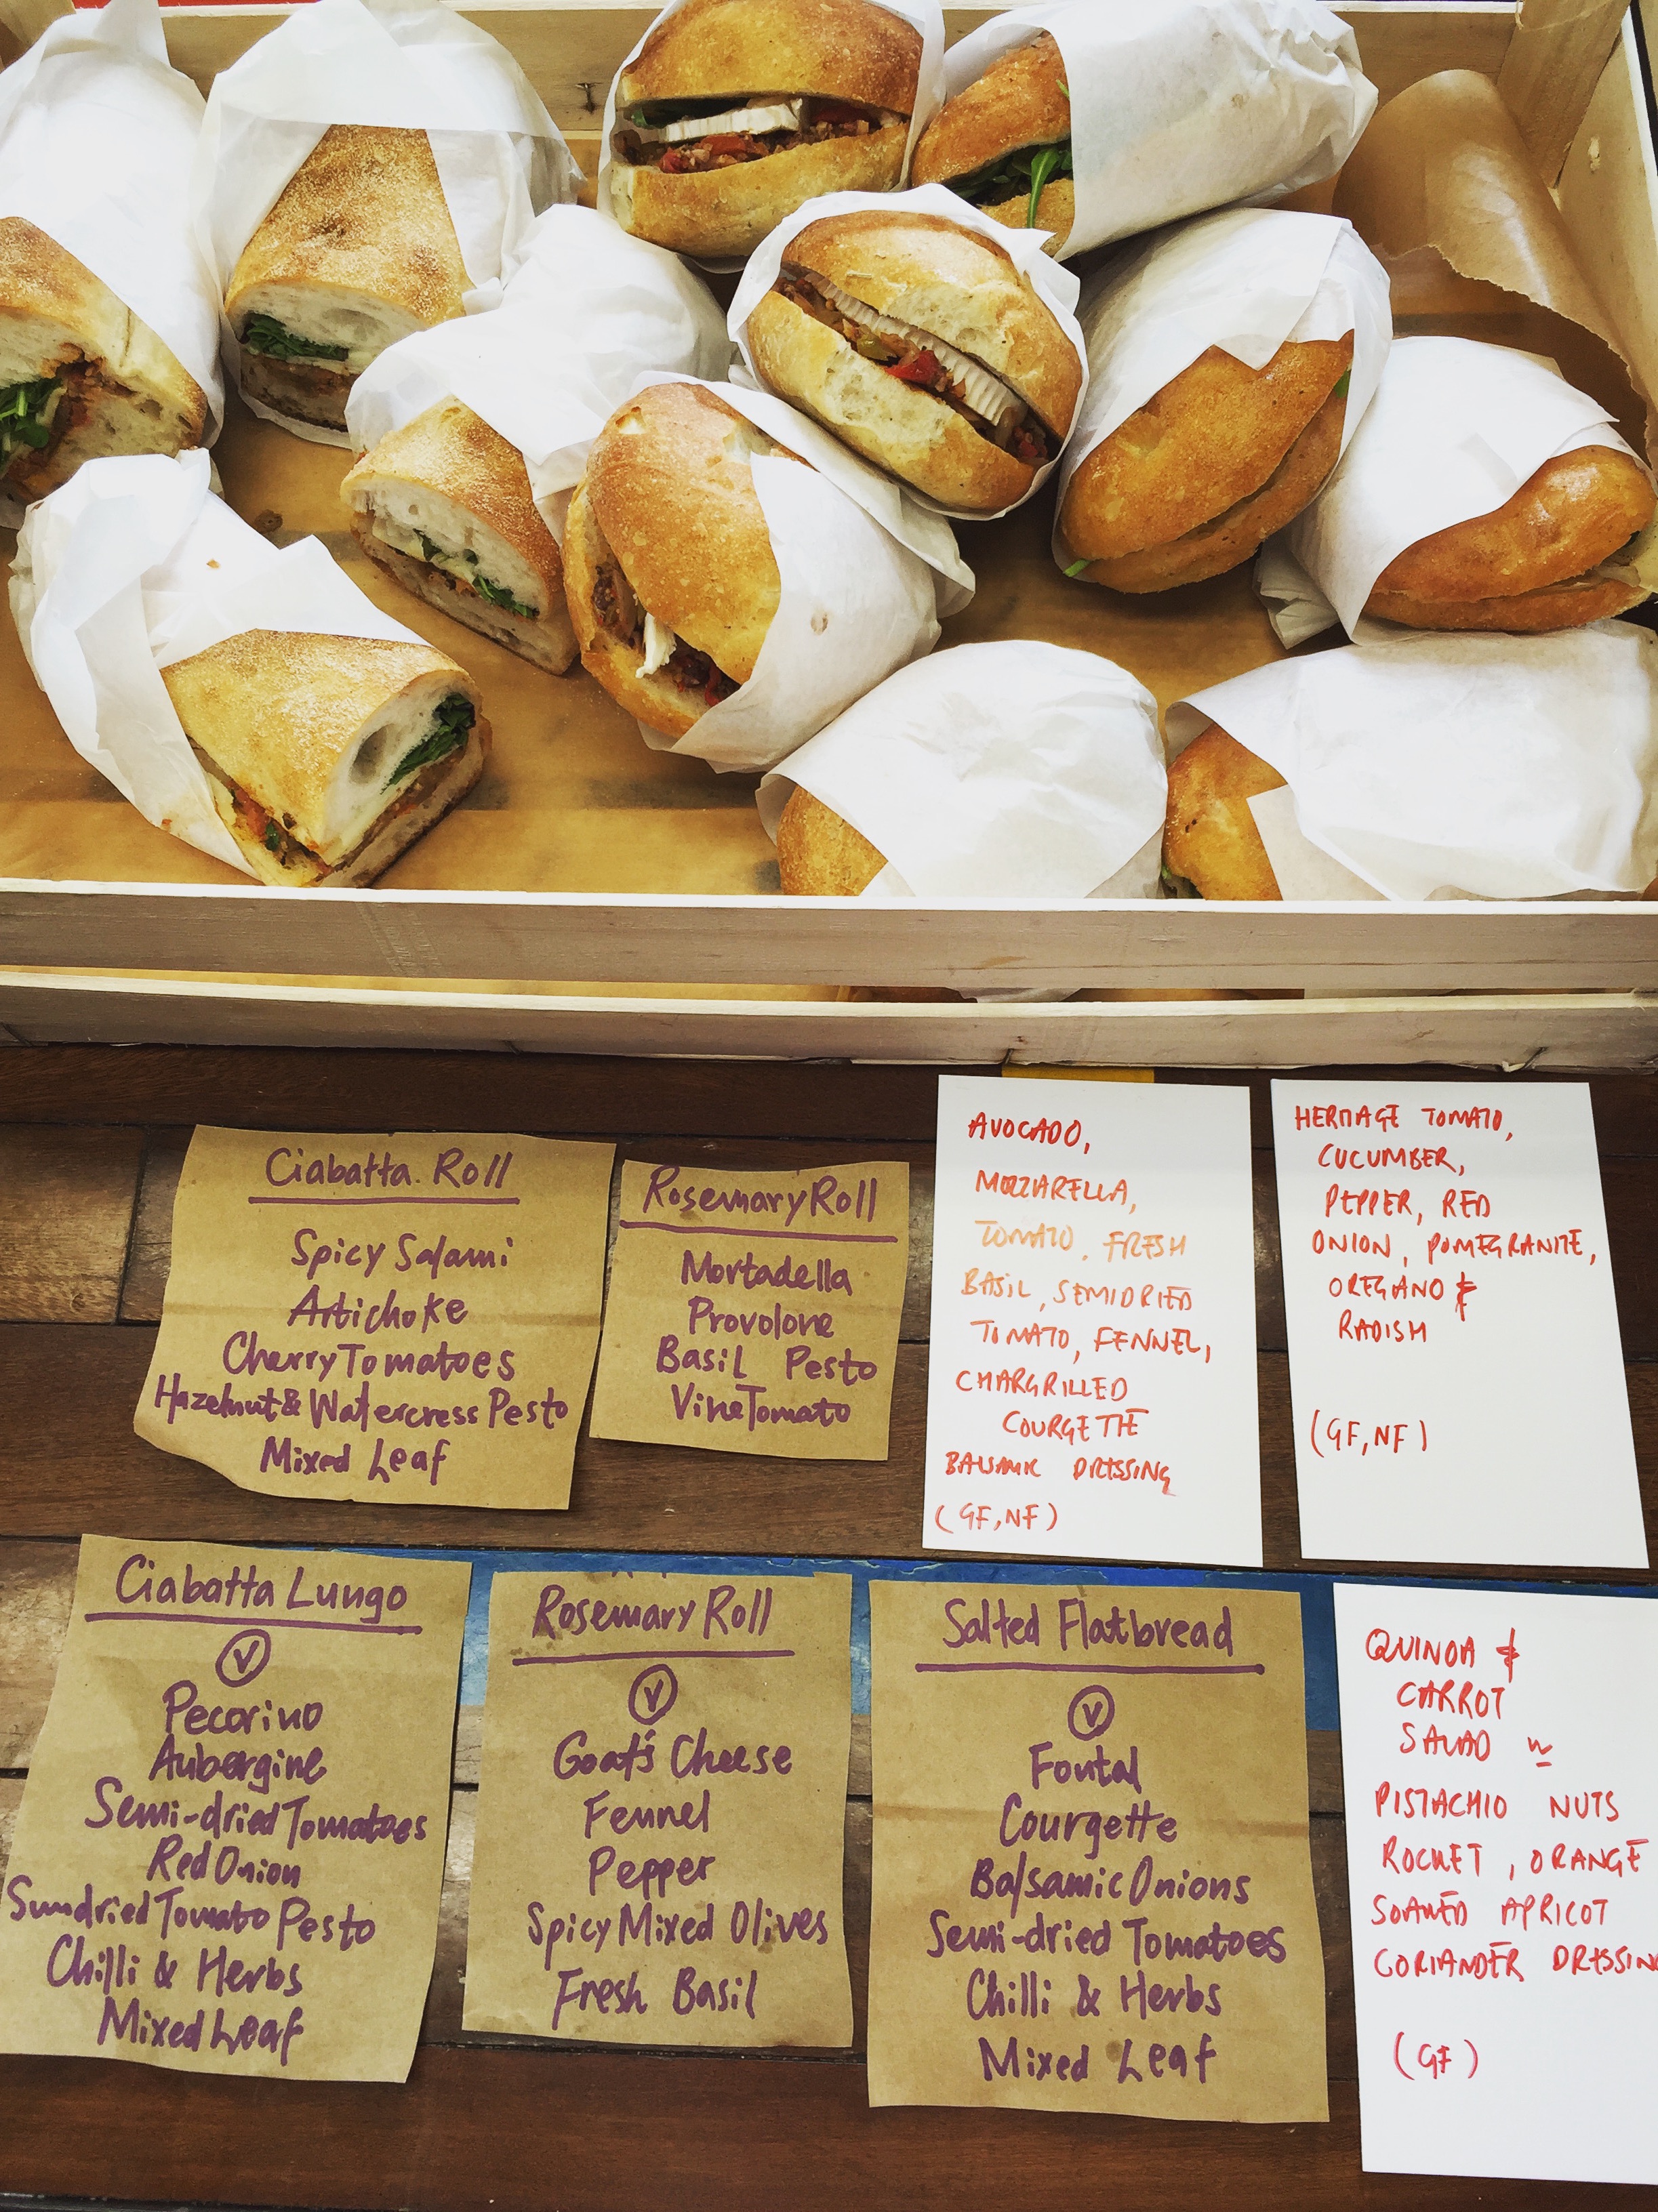 Ciabatta Roll
Spicy Salami
Artichoke
Cherry Tomatoes
Hazelnut & Watercress Pesto
Mixed Leaf
Rosemary Roll
Mortadella
Provolone
Basil Pesto
Vine Tomato
AVOCADO,
MOZZARELLA,
TOMATO, FRESH
BASIL, SEMIDRIED
TOMATO, FENNEL,
CHARGRILLED
COURGETTE
BALSAMIC DRESSING
(GF, NF)
HERITAGE TOMATO,
CUCUMBER,
PEPPER, RED
ONION, POMEGRANITE,
OREGANO &
RADISH
(GF, NF)
Ciabatta Lungo
V
Pecorino
Aubergine
Semi-dried Tomatoes
Red Onion
Sundried Tomato Pesto
Chilli & Herbs
Mixed Leaf
Rosemary Roll
V
Goat's Cheese
Fennel
Pepper
Spicy Mixed Olives
Fresh Basil
Salted Flatbread
V
Fontal
Courgette
Balsamic Onions
Semi-dried Tomatoes
Chilli & Herbs
Mixed Leaf
QUINOA &
CARROT
SALAD w
PISTACHIO NUTS
ROCKET, ORANGE
SOAKED APRICOT
CORIANDER DRESSING
(GF)